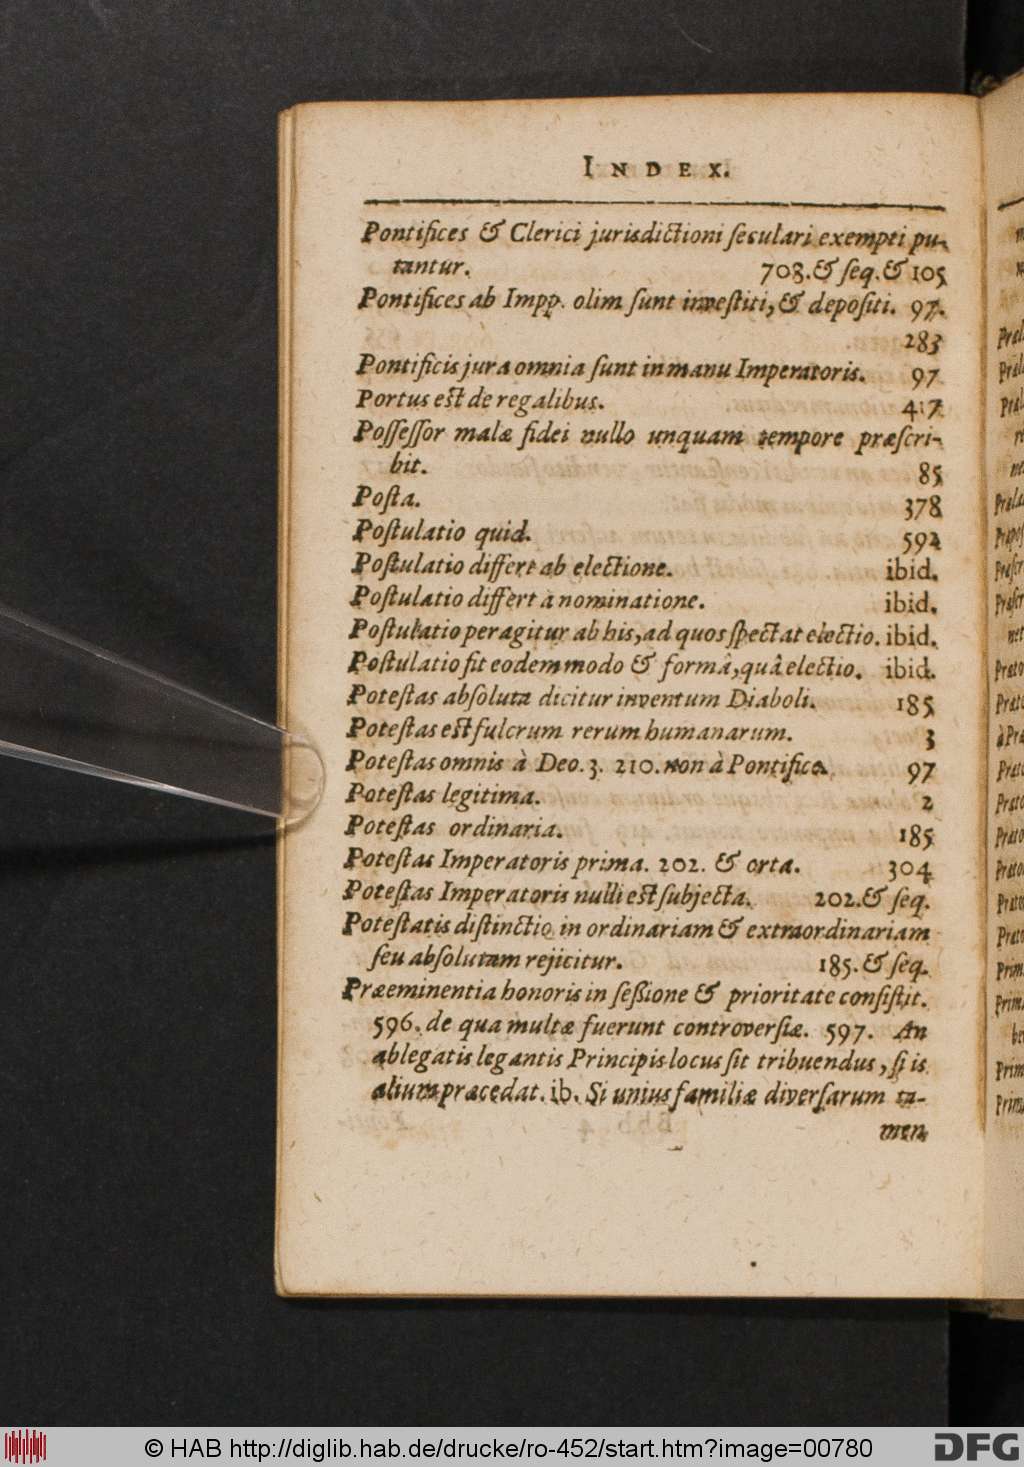 INDEX.
Pontifices & Clerici jurisdictioni seculari exempti pu-
tantur. 703. & seq. & 105
Pontifices ab Impp. olim sunt investiti, & depositi. 97.
283
Pontificis jura omnia sunt in manu Imperatoris. 97
Portus est de regalibus. 417
Possessor malæ fidei nullo unquam tempore præscri-
bit. 85
Posta. 378
Postulatio quid. 592
Postulatio differt ab electione. ibid.
Postulatio differt à nominatione. ibid.
Postulatio peragitur ab his, ad quos spectat electio. ibid.
Postulatio fit eodem modo & formâ, quâ electio. ibid.
Potestas absoluta dicitur inventum Diaboli. 185
Potestas est fulcrum rerum humanarum. 3
Potestas omnis à Deo. 3. 210. non à Pontifice. 97
Potestas legitima. 2
Potestas ordinaria. 185
Potestas Imperatoris prima. 202. & orta. 304
Potestas Imperatoris nulli est subjecta. 202. & seq.
Potestatis distinctio in ordinariam & extraordinariam
seu absolutam rejicitur. 185. & seq.
Præeminentia honoris in seßione & prioritate consistit.
596. de qua multæ fuerunt controversiæ. 597. An
ablegatis legantis Principis locus sit tribuendus, si is
alium præcedat. ib. Si unius familiæ diversarum ta-
men
© HAB http://diglib.hab.de/drucke/ro-452/start.htm?image=00780
DFG